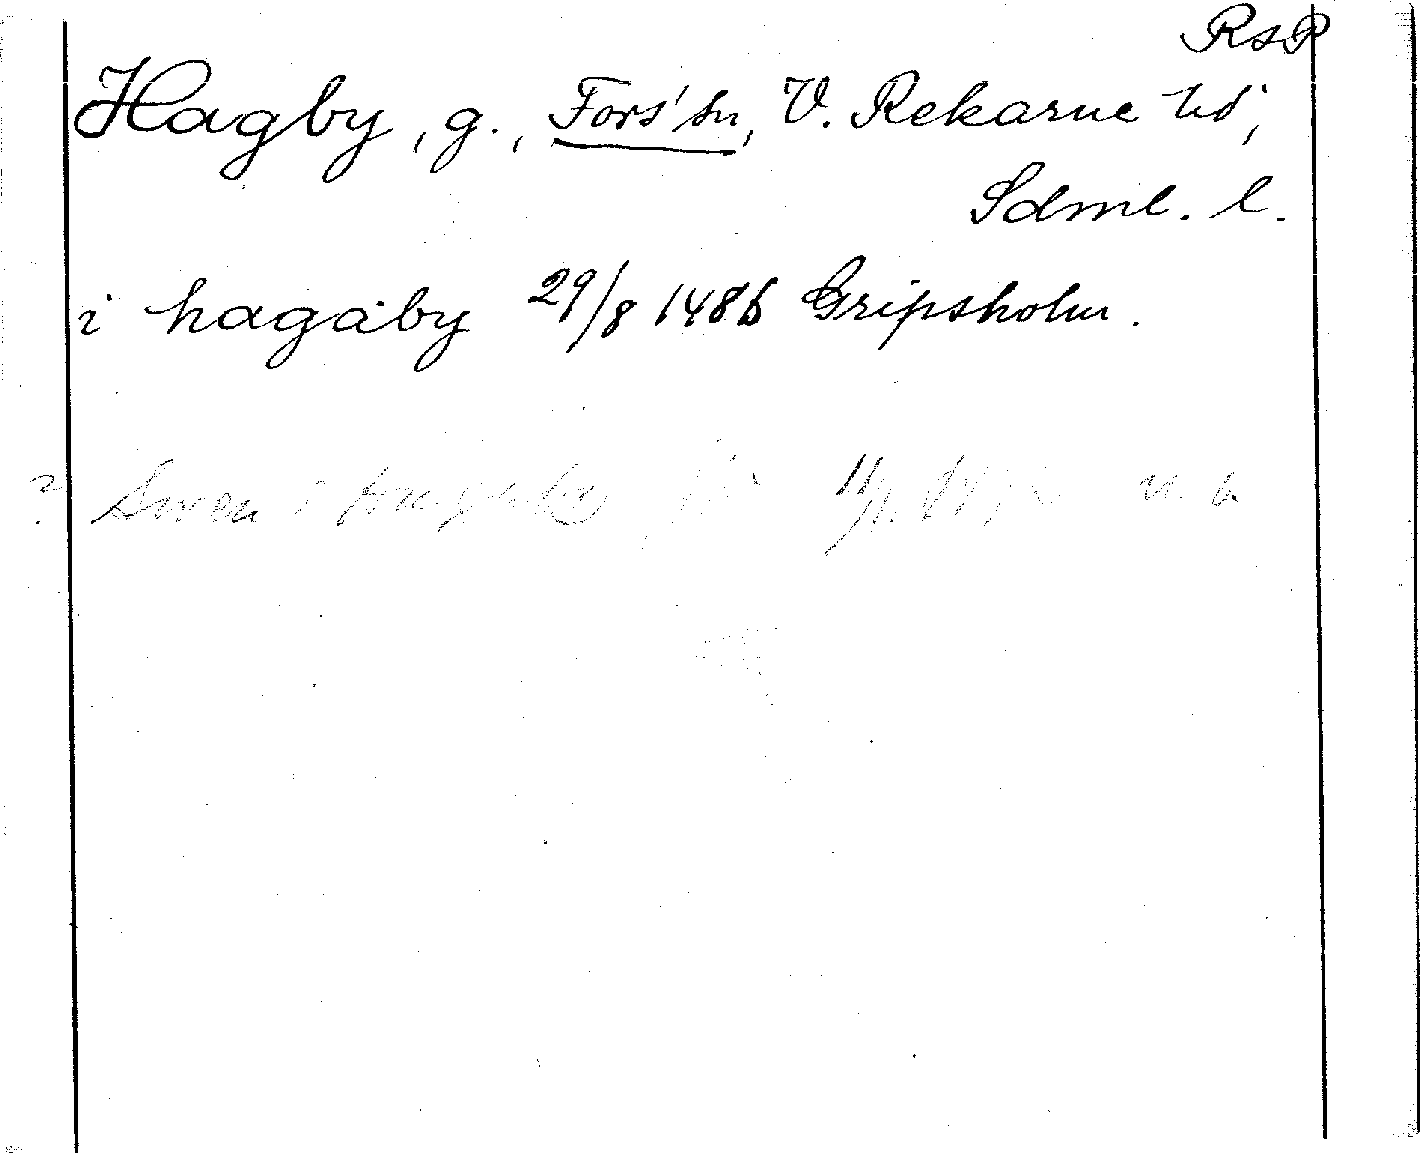 RsP
Hagby, g., Fors' sn, V. Rekarne hd,
Sdml. l.
i hagaby 29/8 1486 Gripsholm.
? Swen i